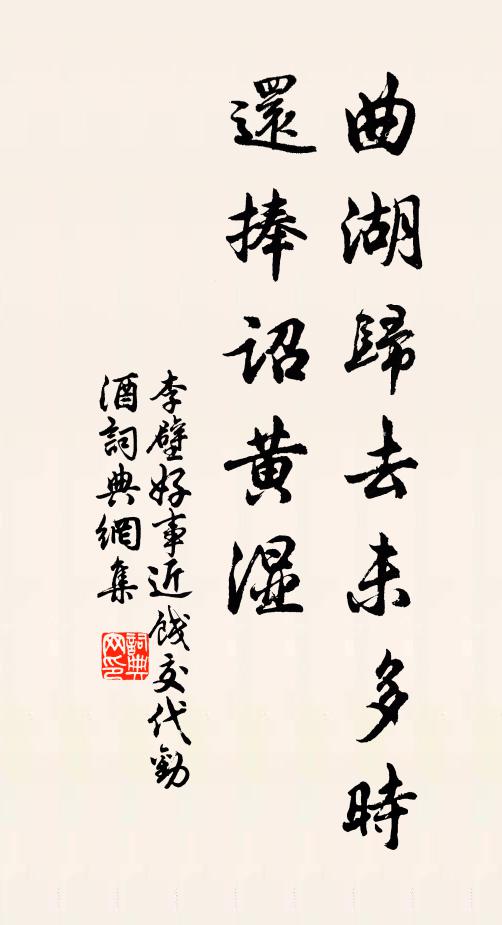 曲湖歸去未多時
還捧詔黄湿
李壁好事近餞交代勸
酒詞典網集
詞典网印